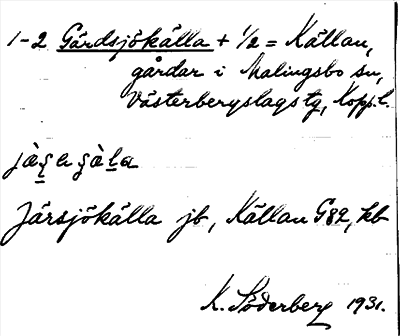 1-2 Gärdsjökälla + 1/2 = Källan,
gårdar i Malingsbo sn,
Västerbergslags tg, Kopp.l.
Järsjökälla jb, Källan G82, kb
K. Söderberg 1931.